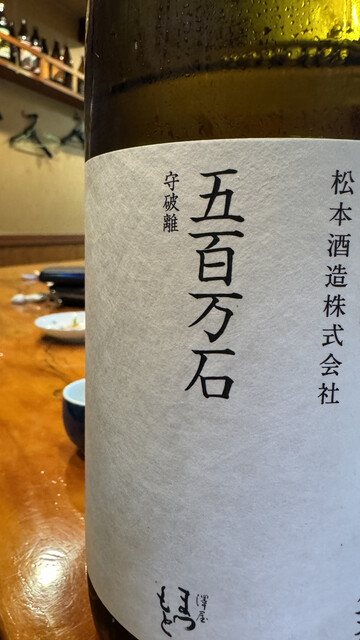 松本酒造株式会社
五百万石
守破離
澤屋
まつもと